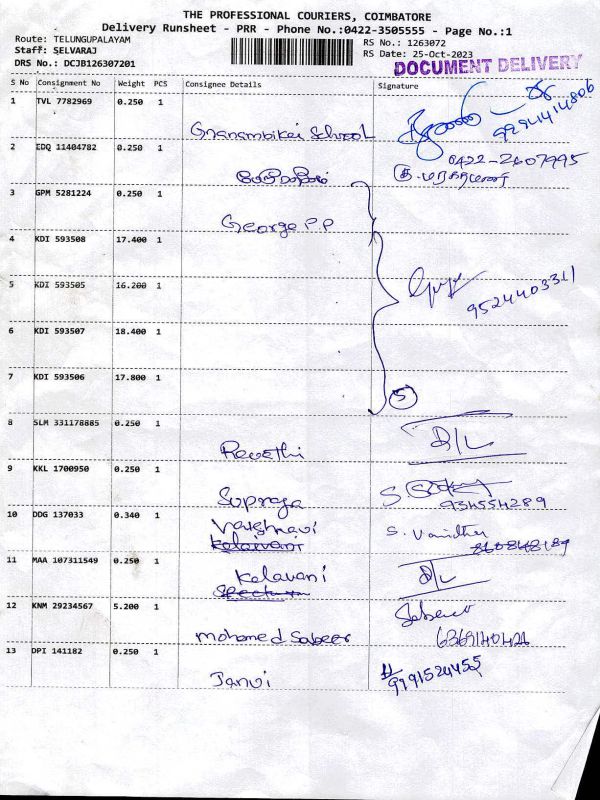 THE PROFESSIONAL COURIERS, COIMBATORE
Delivery Runsheet - PRR - Phone No.:0422-3505555 - Page No.:1
Route: TELUNGUPALAYAM
Staff: SELVARAJ
DRS No.: DCJB126307201
RS No.: 1263072
RS Date: 25-Oct-2023
DOCUMENT DELIVERY
S No Consignment No Weight PCS Consignee Details Signature
1 TVL 7782969 0.250 1
Gnanambikai School 9294414806
2 EDQ 11404782 0.250 1
0422-2607995
3 GPM 5281224 0.250 1
George P.P
4 KDI 593508 17.400 1
5 KDI 593505 16.200 1
9524403311
6 KDI 593507 18.400 1
7 KDI 593506 17.800 1
5
8 SLM 331178885 0.250 1
Revathi D/L
9 KKL 1700950 0.250 1
Supraja 934554289
10 DDG 137033 0.340 1
Vaishnavi S. Vanitha
Kalaivani
11 MAA 107311549 0.250 1
Kelavani D/L
12 KNM 29234567 5.200 1
Mohamed Sabeer 6369140426
13 DPI 141182 0.250 1
Janvi 9791524455